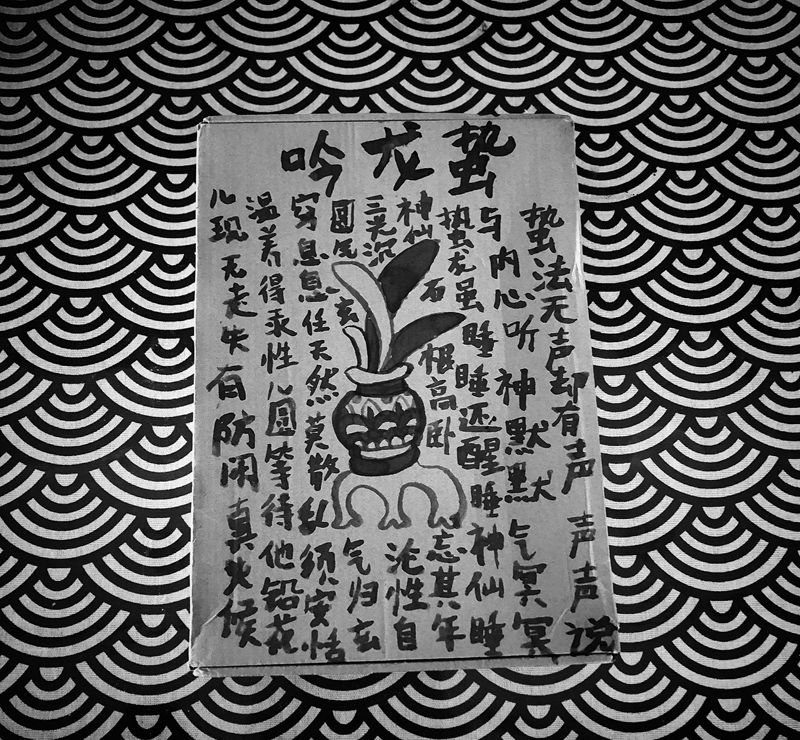 蛰龙吟
蛰法无声却有声声声说
与内心听神默默气冥冥
蛰龙虽睡睡还醒睡神仙睡
神仙石根高卧忘其年
三光沉沦性自
圆气玄气归玄
窍息息任天然莫散乱须安恬
温养得汞性儿圆等待他铅花
儿现无走失有防闲真火候